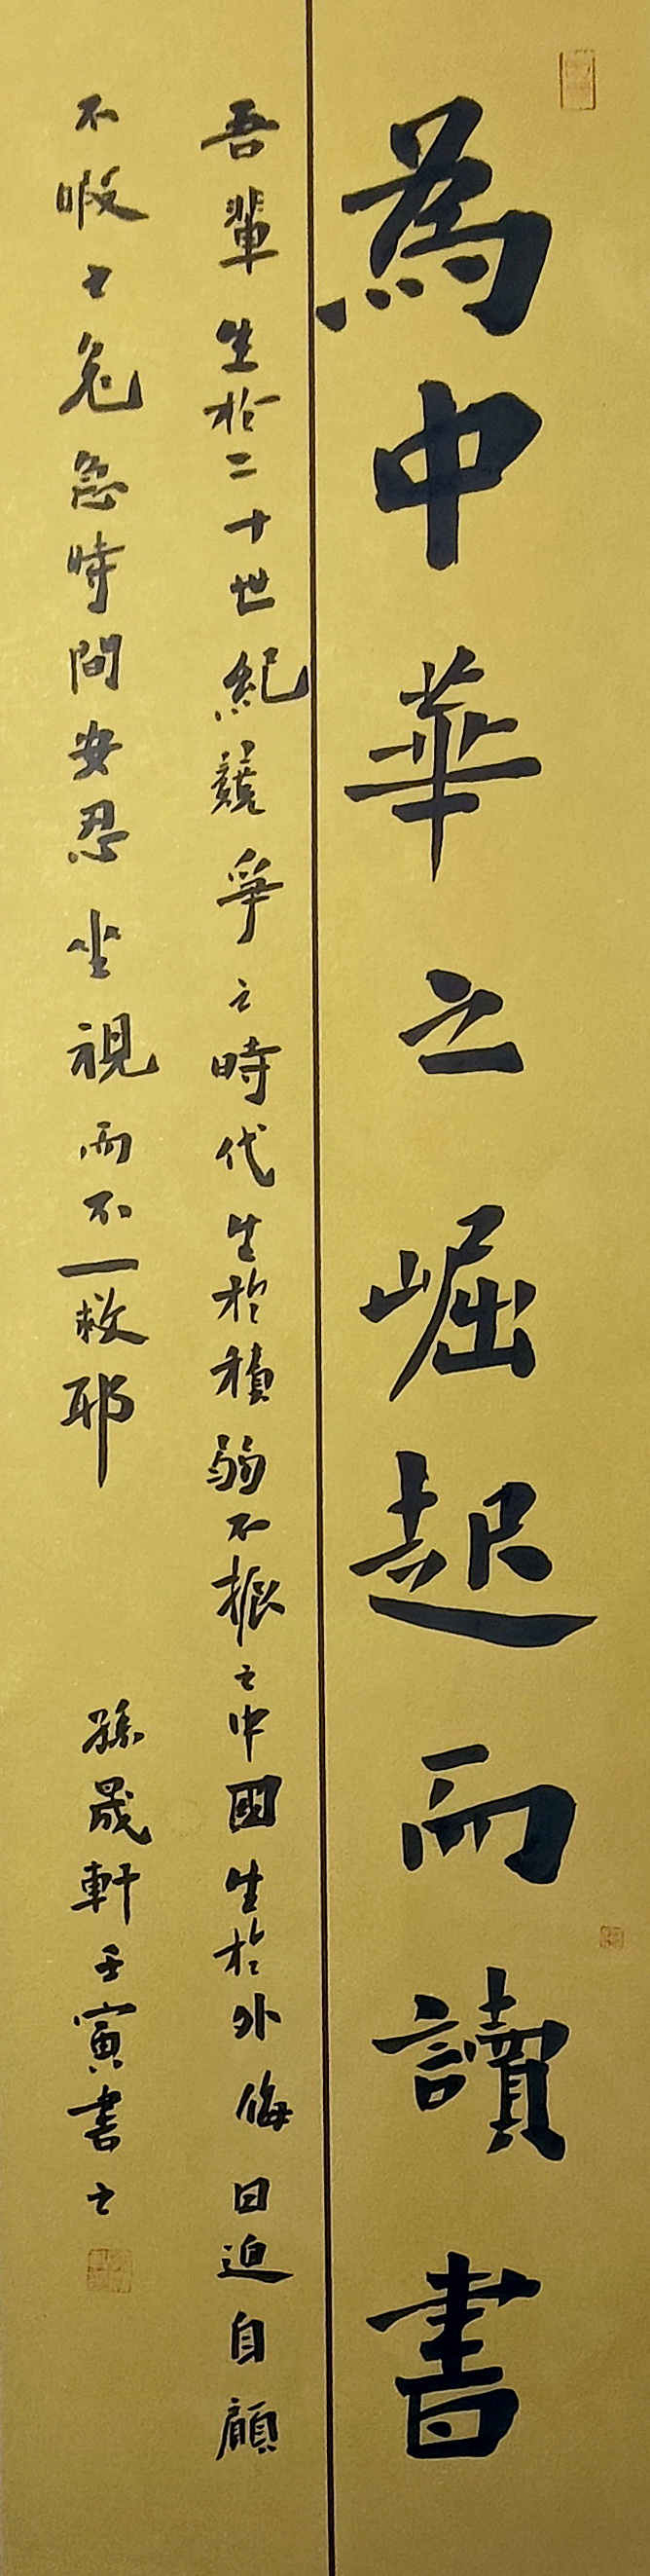 為中華之崛起而讀書
吾輩生於二十世紀競爭之時代生於積弱不振之中國生於外侮日迫自顧
不暇之危急時間安忍坐視而不一救耶
孫晟軒壬寅書之